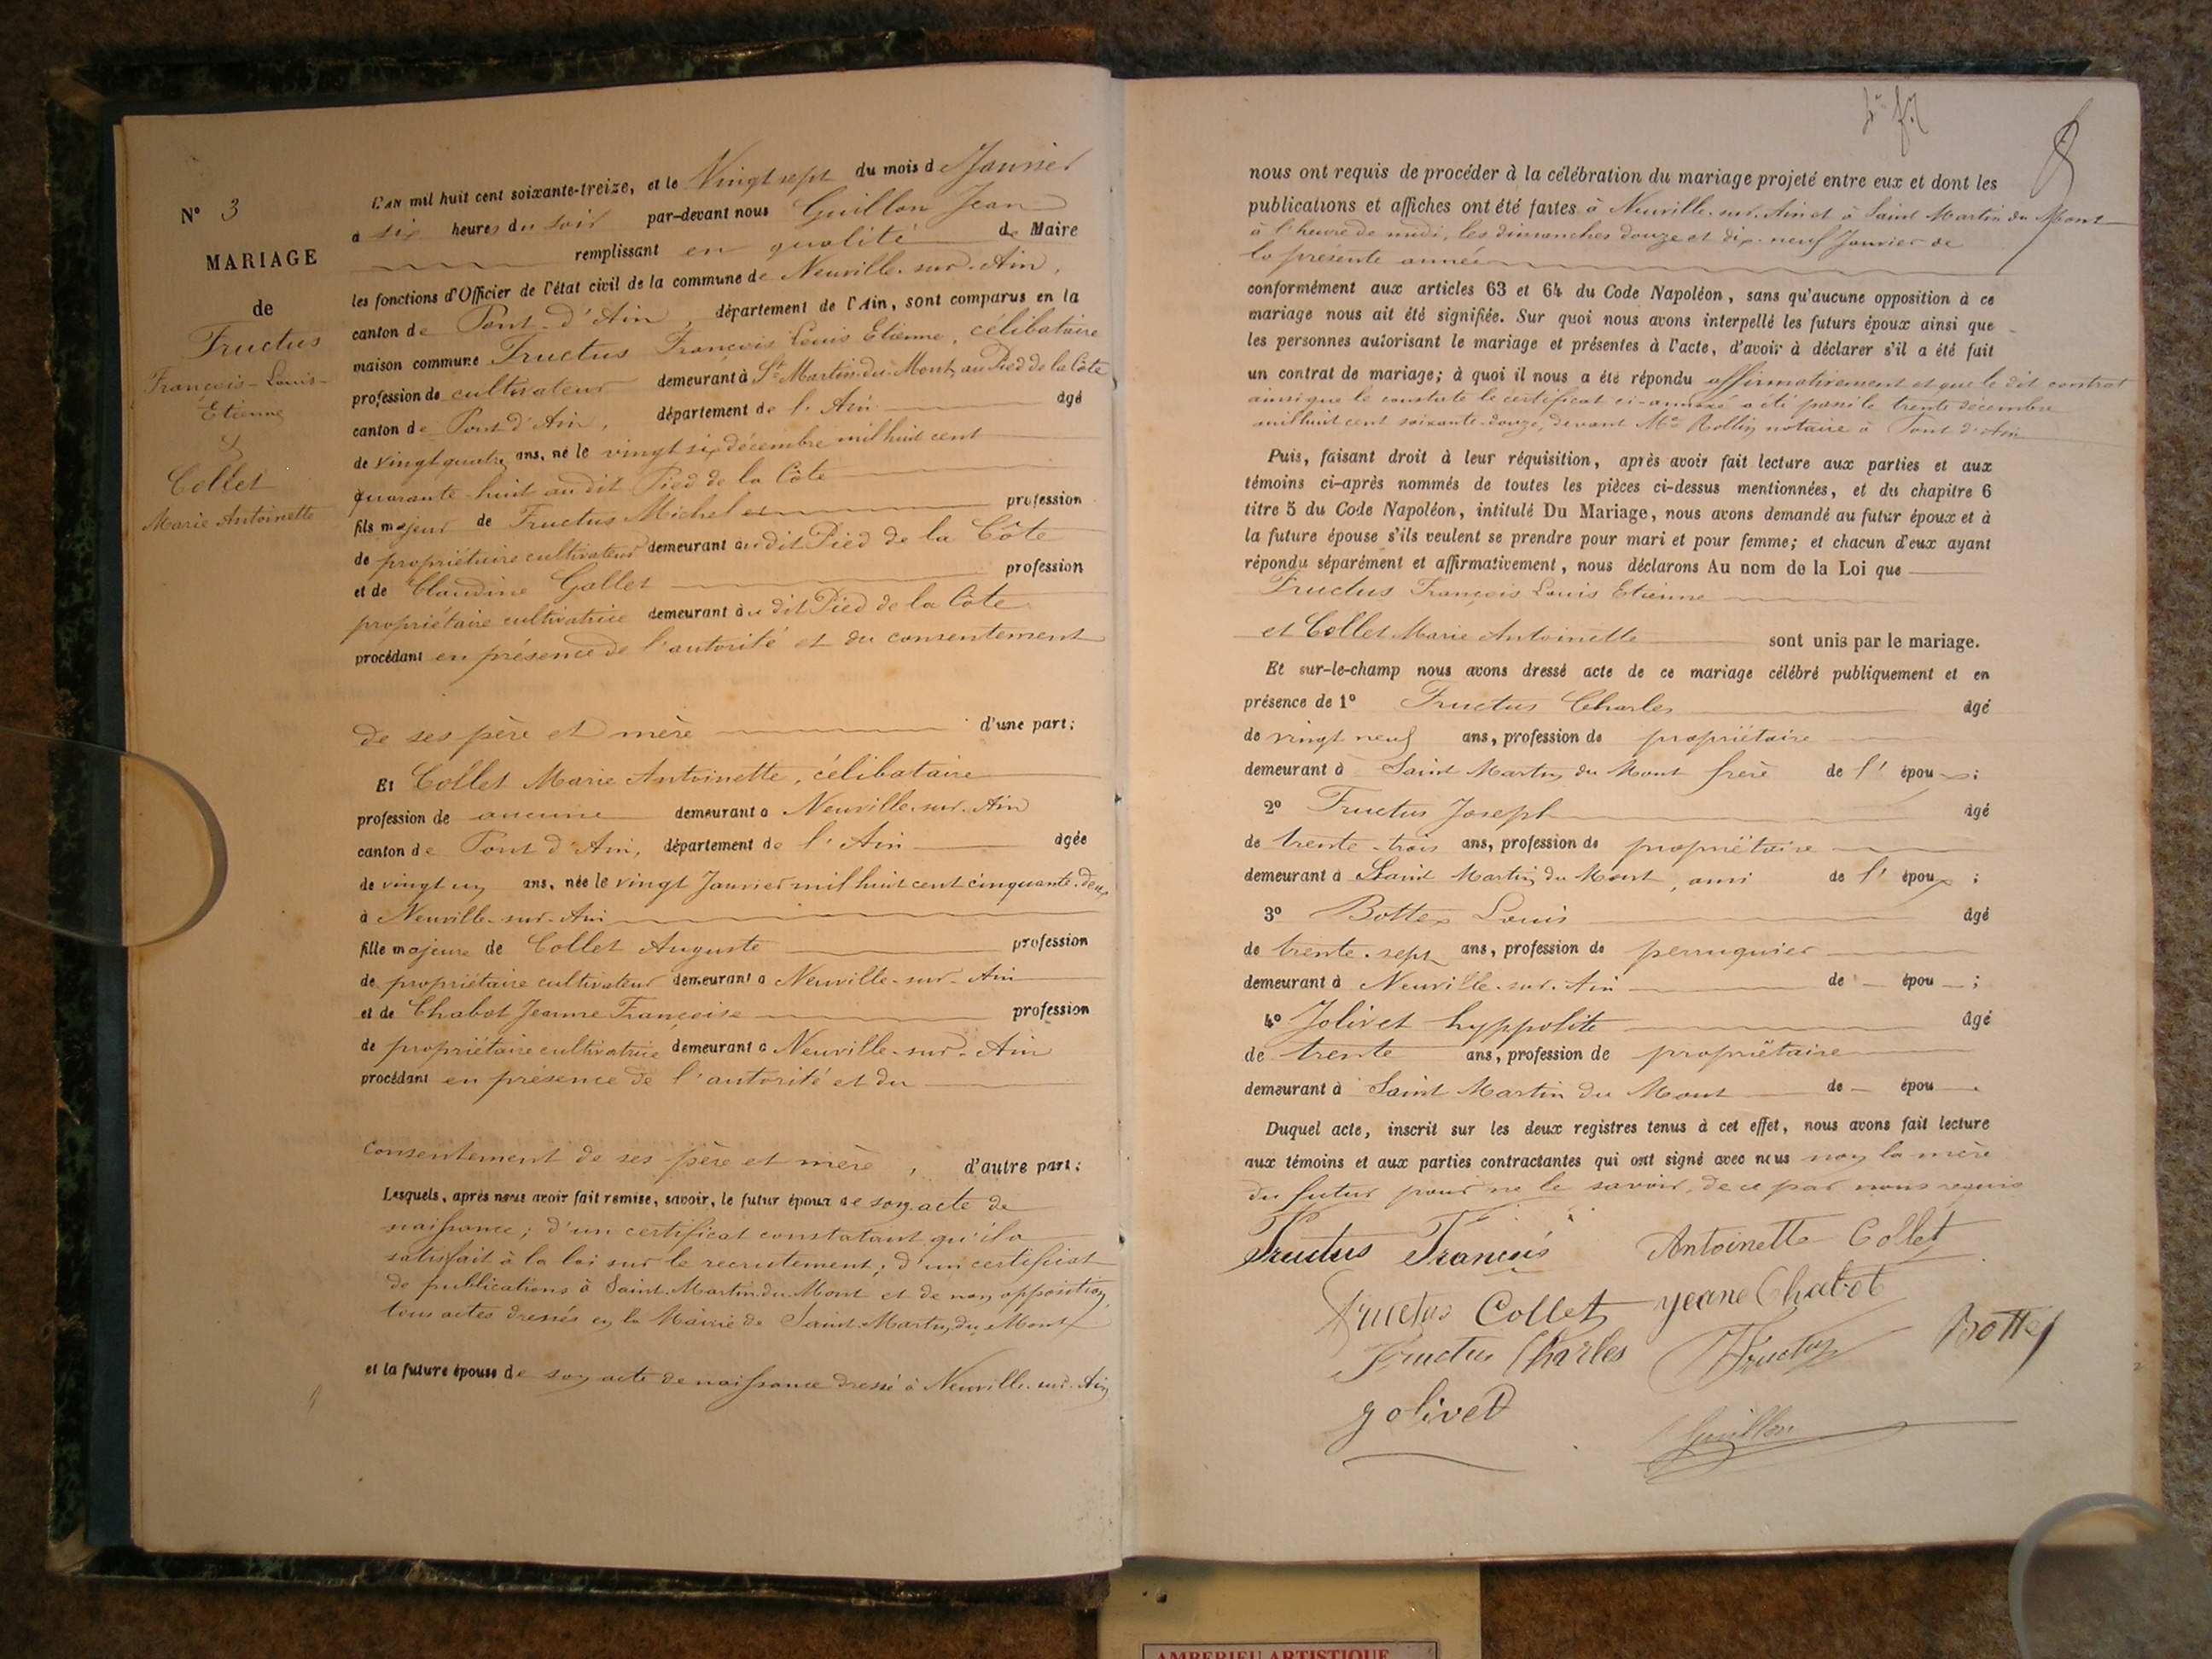 N° 3
MARIAGE
de
Fructus
François-Louis-
Etienne
&
Collet
Marie Antoinette
L'AN mil huit cent soixante-treize, et le Vingt sept du mois de Janvier
a six heures du soir par-devant nous Guillon Jean
remplissant en qualité de Maire
les fonctions d'Officier de l'état civil de la commune de Neuville-sur-Ain,
canton de Pont-d'Ain, département de l'Ain, sont comparus en la
maison commune Fructus François Louis Etienne, célibataire
profession de cultivateur demeurant à St Martin-du-Mont, au Pied de la Côte
canton de Pont d'Ain, département de l'Ain âgé
de vingt quatre ans, né le vingt six décembre mil huit cent
quarante-huit au dit Pied de la Côte
fils majeur de Fructus Michel profession
de propriétaire cultivateur demeurant au dit Pied de la Côte
et de Claudine Gallet profession
propriétaire cultivatrice demeurant au dit Pied de la Côte
procédant en présence de l'autorité et du consentement
de ses père et mère d'une part;
Et Collet Marie Antoinette, célibataire
profession de aucune demeurant a Neuville-sur-Ain
canton de Pont d'Ain, département de l'Ain âgée
de vingt un ans, née le vingt Janvier mil huit cent cinquante-deux
à Neuville-sur-Ain
fille majeure de Collet Auguste profession
de propriétaire cultivateur demeurant a Neuville-sur-Ain
et de Chabot Jeanne Françoise profession
de propriétaire cultivatrice demeurant a Neuville-sur-Ain
procédant en présence de l'autorité et du
consentement de ses père et mère, d'autre part;
Lesquels, après nous avoir fait remise, savoir, le futur époux de son acte de
naissance; d'un certificat constatant qu'il a
satisfait à la loi sur le recrutement; d'un certificat
de publications à Saint-Martin-du-Mont et de non opposition,
tous actes dressés en la Mairie de Saint-Martin-du-Mont
et la future épouse de son acte de naissance dressé à Neuville-sur-Ain
8
nous ont requis de procéder à la célébration du mariage projeté entre eux et dont les
publications et affiches ont été faites à Neuville-sur-Ain et à Saint Martin du Mont
à l'heure de midi, les dimanches douze et dix-neuf Janvier de
la présente année
conformément aux articles 63 et 64 du Code Napoléon, sans qu'aucune opposition à ce
mariage nous ait été signifiée. Sur quoi nous avons interpellé les futurs époux ainsi que
les personnes autorisant le mariage et présentes à l'acte, d'avoir à déclarer s'il a été fait
un contrat de mariage; à quoi il nous a été répondu affirmativement et que le dit contrat
ainsi que le constate le certificat ci-annexé a été passé le trente décembre
mil huit cent soixante-douze, devant Me Rollin notaire à Pont d'Ain
Puis, faisant droit à leur réquisition, après avoir fait lecture aux parties et aux
témoins ci-après nommés de toutes les pièces ci-dessus mentionnées, et du chapitre 6
titre 5 du Code Napoléon, intitulé Du Mariage, nous avons demandé au futur époux et à
la future épouse s'ils veulent se prendre pour mari et pour femme; et chacun d'eux ayant
répondu séparément et affirmativement, nous déclarons Au nom de la Loi que
Fructus François Louis Etienne
et Collet Marie Antoinette sont unis par le mariage.
Et sur-le-champ nous avons dressé acte de ce mariage célébré publiquement et en
présence de 1° Fructus Charles âgé
de vingt neuf ans, profession de propriétaire
demeurant à Saint Martin du Mont frère de l'époux;
2° Fructus Joseph âgé
de trente-trois ans, profession de propriétaire
demeurant à Saint Martin du Mont, ami de l'époux;
3° Bottex Louis âgé
de trente-sept ans, profession de perruquier
demeurant à Neuville-sur-Ain de épou;
4° Jolivet hyppolite âgé
de trente ans, profession de propriétaire
demeurant à Saint Martin du Mont de épou.
Duquel acte, inscrit sur les deux registres tenus à cet effet, nous avons fait lecture
aux témoins et aux parties contractantes qui ont signé avec nous non la mère
du futur pour ne le savoir, de ce par nous requis
Fructus François Antoinette Collet
Fructus Collet jeane Chabot
Fructus Charles JFructus Bottex
jolivet
Guillon
AMBERIEU ARTISTIQUE